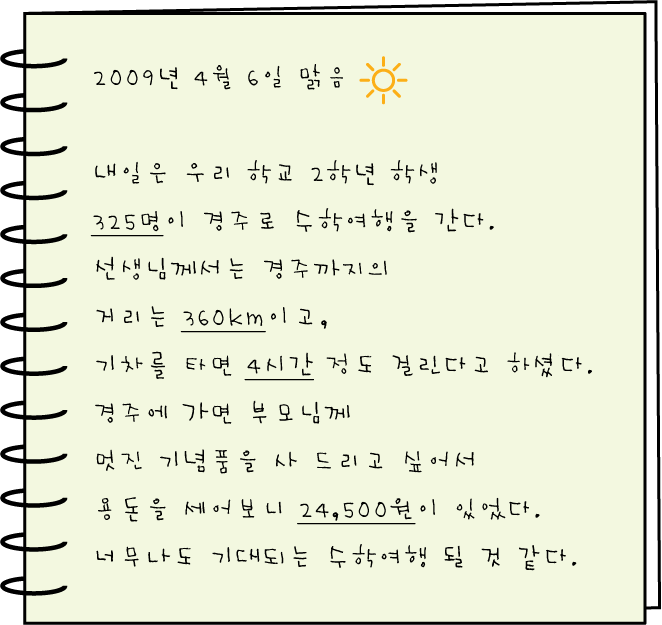 2009년 4월 6일 맑음
내일은 우리 학교 2학년 학생
325명이 경주로 수학여행을 간다.
선생님께서는 경주까지의
거리는 360km이고,
기차를 타면 4시간 정도 걸린다고 하셨다.
경주에 가면 부모님께
멋진 기념품을 사 드리고 싶어서
용돈을 세어보니 24,500원이 있었다.
너무나도 기대되는 수학여행 될 것 같다.